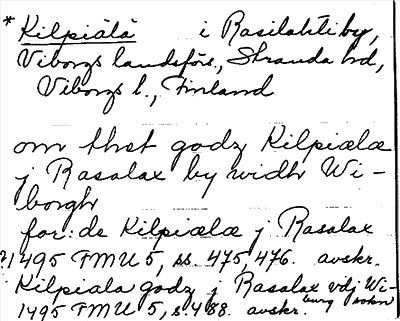 * Kilpiälä i Rasilahti by,
Viborgs landsförs., Stranda hd,
Viborgs l., Finland
om thet godz Kilpiælæ
j Rasalax by widh Wi-
borgh
for: de Kilpiælæ j Rasalax
1495 FMU 5, ss. 475, 476. avskr.
Kilpiala godz j Rasalax vdj Wi-
burg sokn
1495 FMU 5, s. 488. avskr.